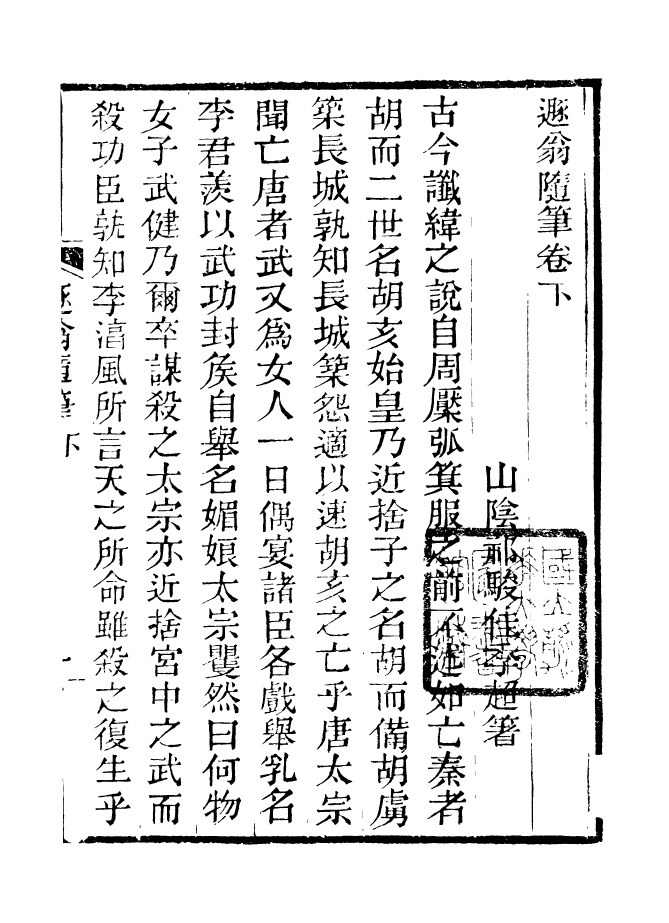 遯翁隨筆卷下
山陰祁駿佳季超著
古今讖緯之說自周檿弧箕服之前不述如亡秦者
胡而二世名胡亥始皇乃近捨子之名胡而備胡虜
築長城孰知長城築怨適以速胡亥之亡乎唐太宗
聞亡唐者武又為女人一日偶宴諸臣各戲舉乳名
李君羨以武功封矦自舉名媚娘太宗矍然曰何物
女子武健乃爾卒謀殺之太宗亦近捨宮中之武而
殺功臣孰知李湻風所言天之所命雖殺之復生乎
遯翁隨筆 下
一